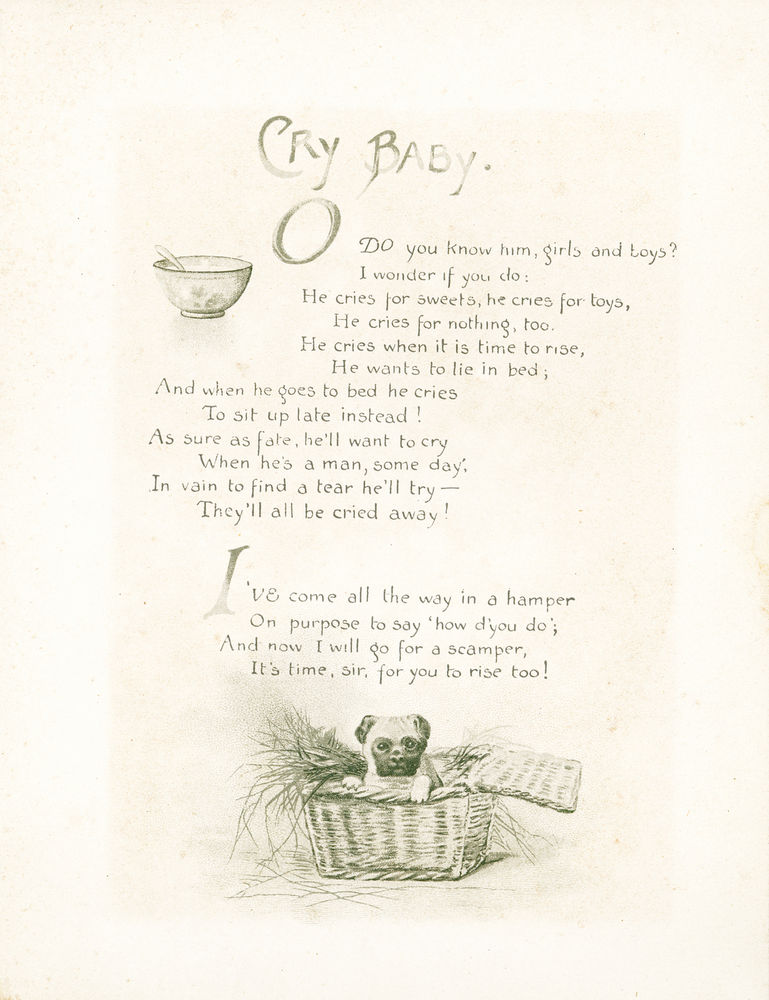 CRY BABY.
O DO you know him, girls and boys?
I wonder if you do:
He cries for sweets, he cries for toys,
He cries for nothing, too.
He cries when it is time to rise,
He wants to lie in bed;
And when he goes to bed he cries
To sit up late instead!
As sure as fate, he'll want to cry
When he's a man, some day;
In vain to find a tear he'll try —
They'll all be cried away!
I'VE come all the way in a hamper
On purpose to say 'how d'you do';
And now I will go for a scamper,
It's time, sir, for you to rise too!